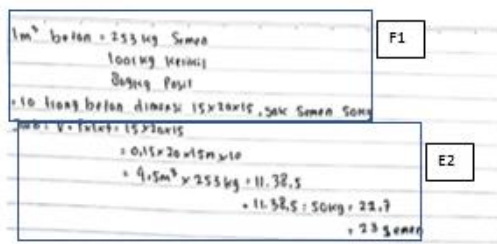 1m³ beton = 253 kg Semen
1001 kg kerikil
809 kg Pasir
F1
• 10 tiang beton dimensi 15x20x15, sak Semen 50kg
Jwb: V = Pxlxt = 15x20x15
= 0,15x20x15m x10
= 4,5m³ x 253 kg = 11.38,5
E2
= 11.38,5 : 50kg = 22,7
= 23 Semen